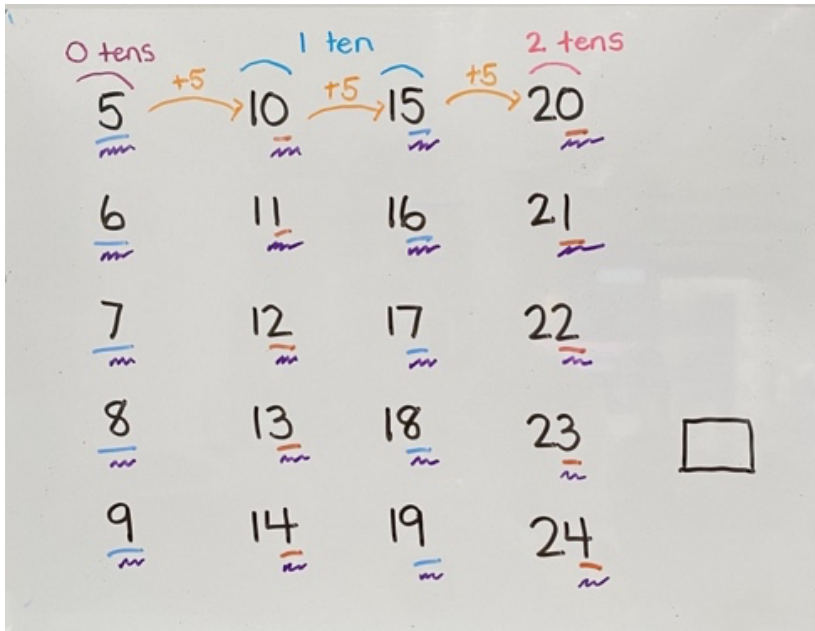 0 tens 1 ten 2 tens
+5 +5 +5
5 10 15 20
6 11 16 21
7 12 17 22
8 13 18 23
9 14 19 24